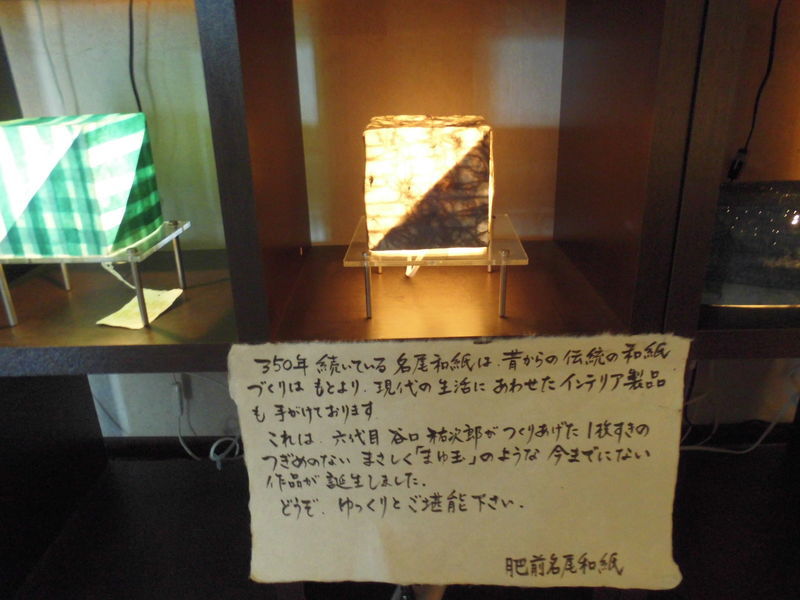 350年 続いている 名尾和紙は、昔からの 伝統の和紙
づくりは もとより、現代の生活に あわせた インテリア製品
も 手がけております。
これは、六代目 谷口 祐次郎が つくりあげた 1枚すきの
つぎめのない まさしく「まゆ玉」のような 今までにない
作品が 誕生しました。
どうぞ、ゆっくりと ご堪能下さい。
肥前名尾和紙